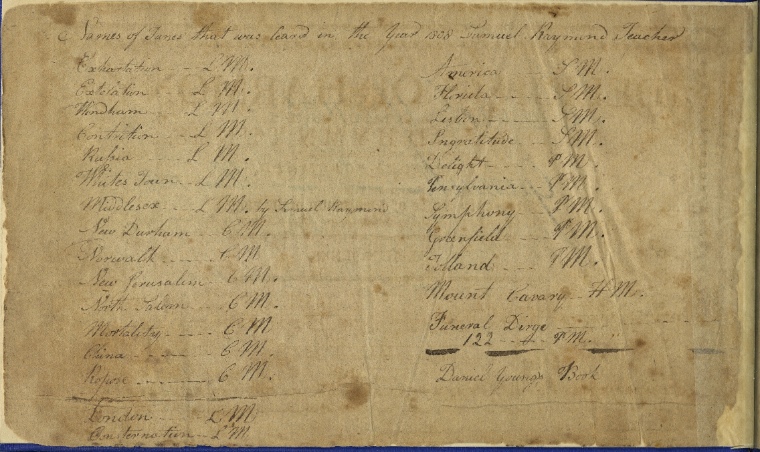 Names of Tunes that was learnd in the Year 1808 Samuel Raymond Teacher
Exhortation L M.
L M.
Windham L M.
Contrition L M.
Rubia L M.
Whites Town L M.
Middlesex L M. by Samuel Raymond
New Durham C M.
Norwalk C M
New Jerusalem C M.
North Salem C M
Mortality C M
China C M.
Repose C M.
London L M
Consternation L M
America S M.
Florida S M.
Lisbon S M.
Ingratitude S M.
Delight P M
Pensylvania P M.
Symphony P M.
Greenfield P M
Tolland P M.
Mount Cavary H M.
Funeral Dirge
122 P M.
Daniel Youngs Book